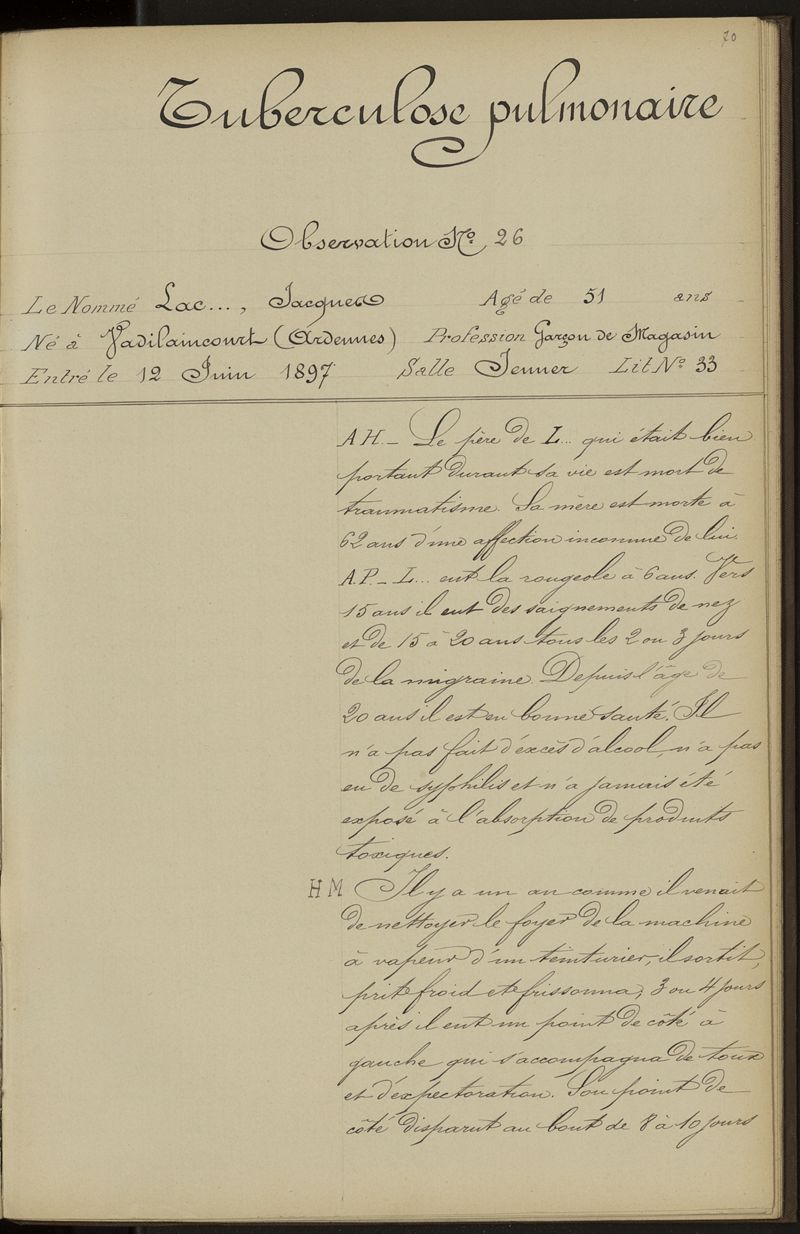 70
Tuberculose pulmonaire
Observation No. 26
Le Nommé Lac..., Jacques Agé de 51 ans
Né à Vadilaincourt (Ardennes) Profession Garçon de Magasin
Entré le 12 Juin 1897 Salle Jenner Lit No. 33
A H. _ Le père de L... qui était bien
portant durant sa vie est mort de
traumatisme. Sa mère est morte à
62 ans d'une affection inconnue de lui.
A.P. _ L... eut la rougeole à 6 ans. Vers
15 ans il eut des saignements de nez
et de 15 à 20 ans tous les 2 ou 3 jours
de la migraine. Depuis l'âge de
20 ans il est en bonne santé. Il
n'a pas fait d'excès d'alcool, n'a pas
eu de syphilis et n'a jamais été
exposé à l'absorption de produits
toxiques.
H M Il y a un an comme il venait
de nettoyer le foyer de la machine
à vapeur d'un teinturier, il sortit,
prit froid et frissonna, 3 ou 4 jours
après il eut un point de côté à
gauche qui s'accompagna de toux
et d'expectoration. Son point de
côté disparut au bout de 8 à 10 jours